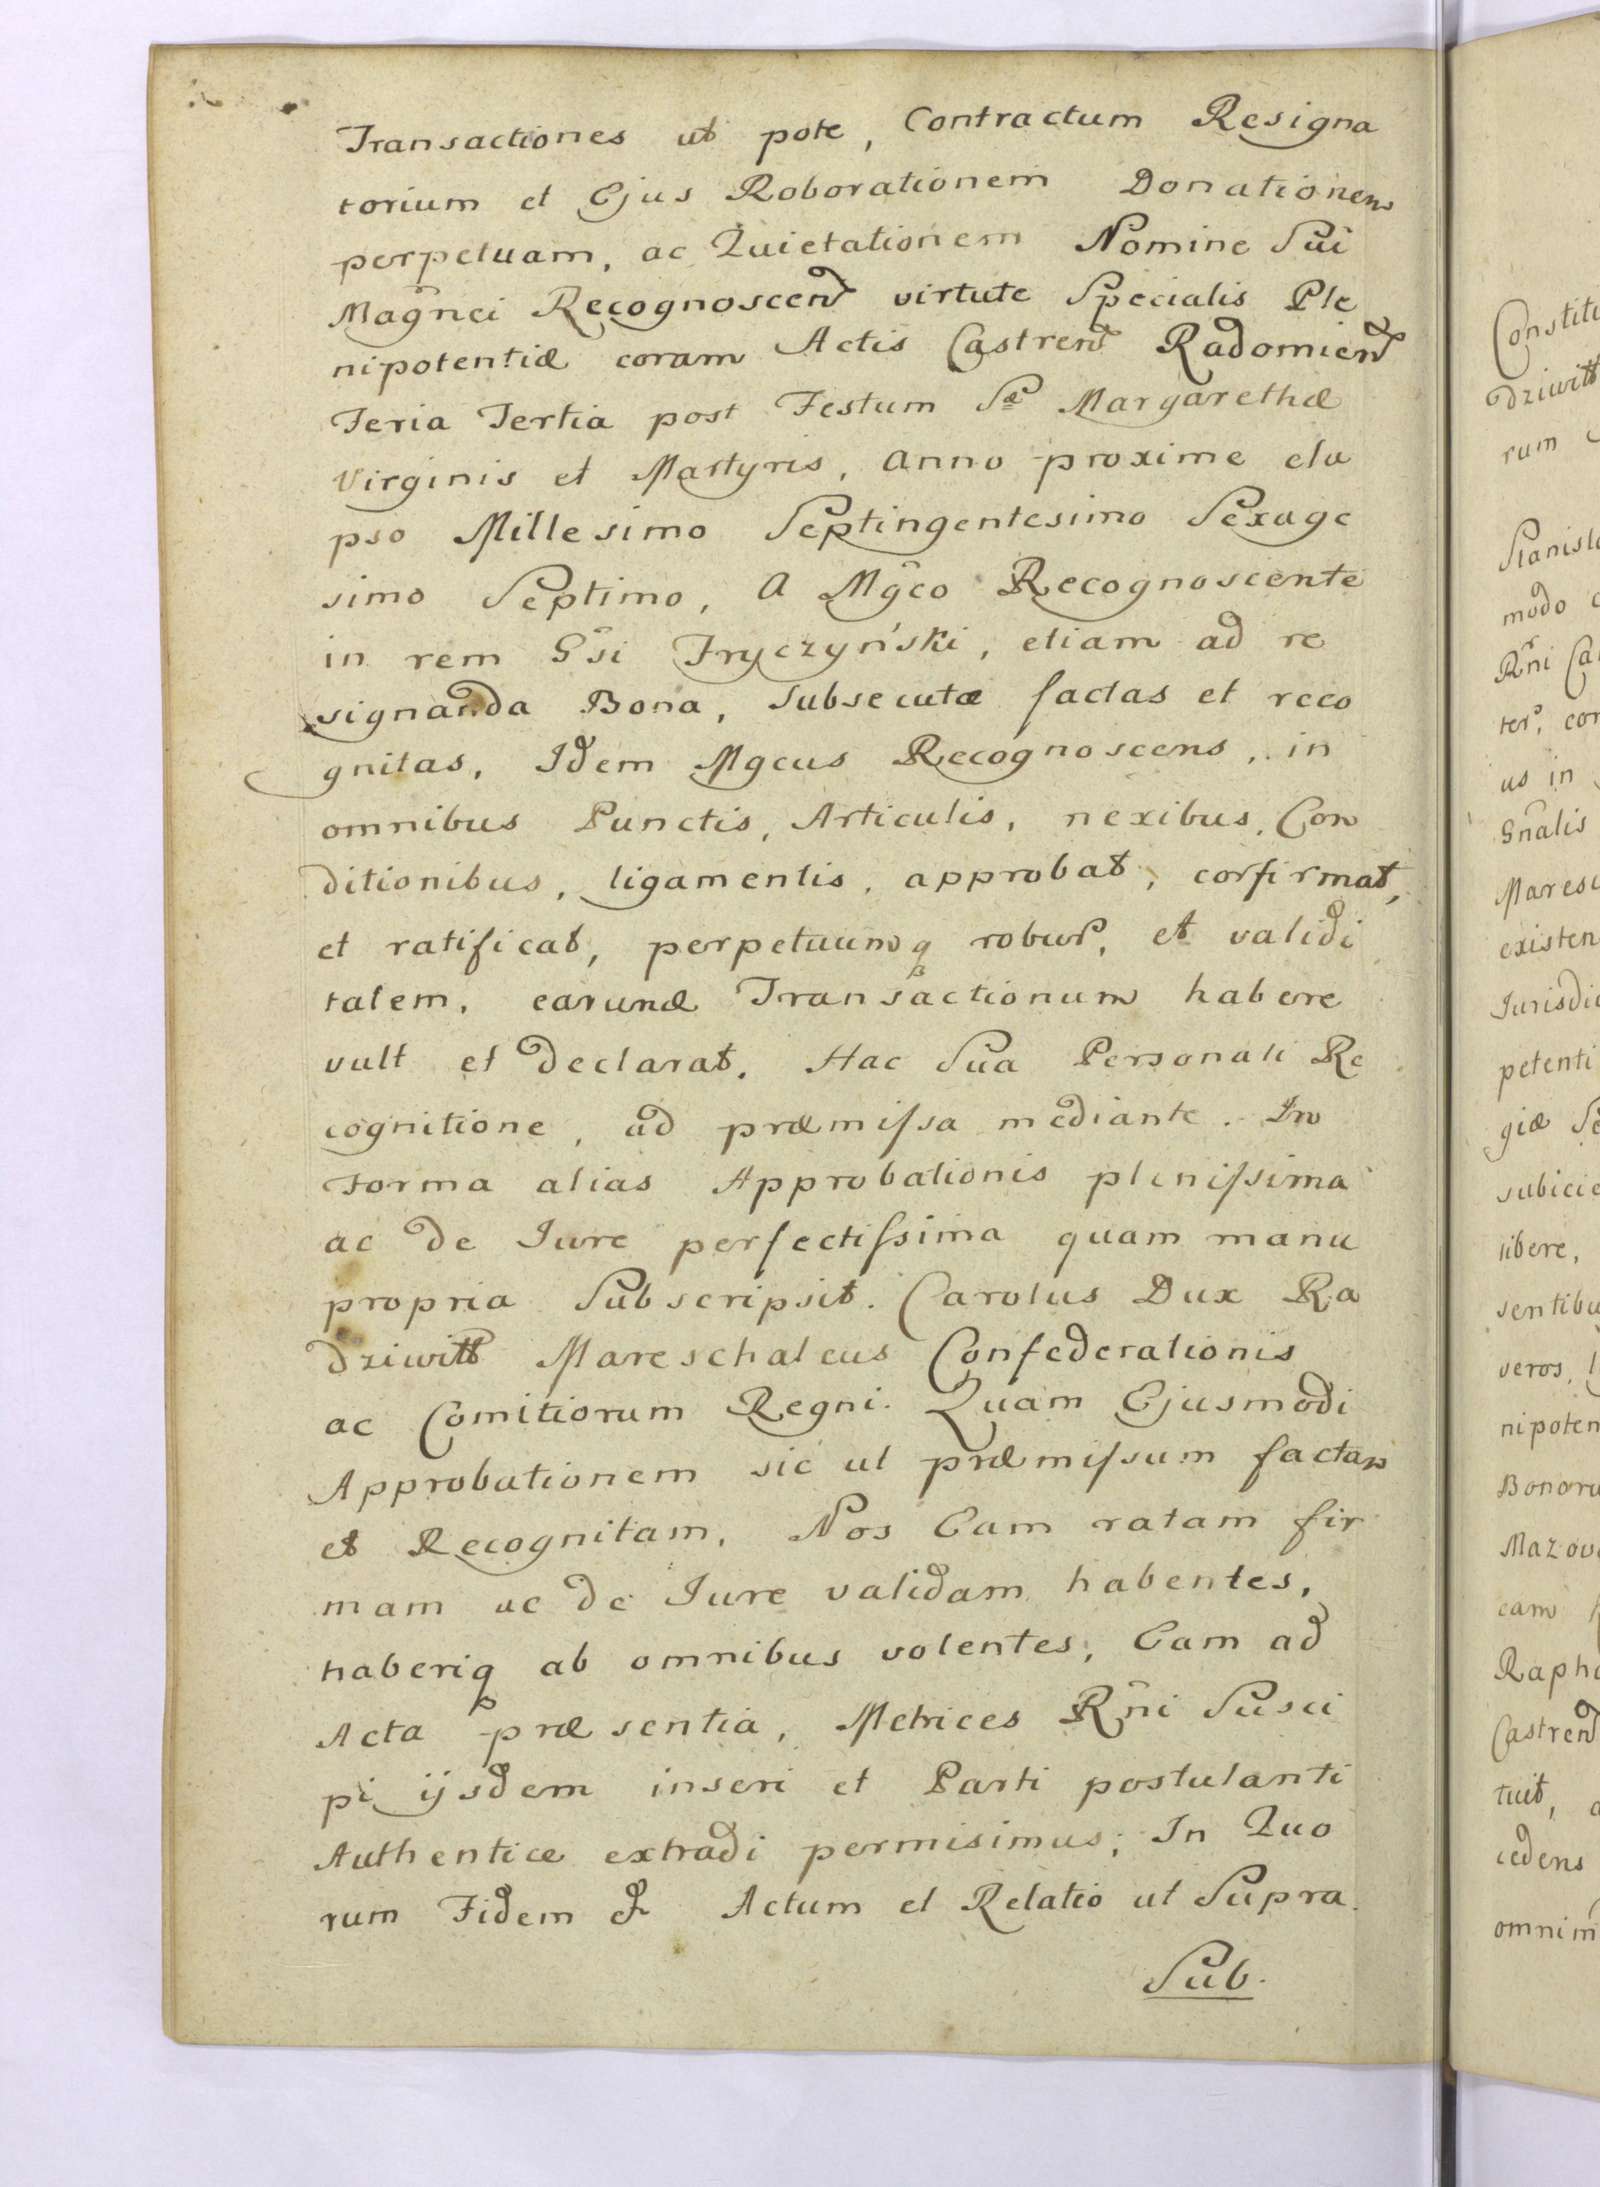 Transactiones ut pote, Contractum Resigna
torium et Ejus Roborationem Donationem
perpetuam, ac Quietationem Nomine Sui
Magnci Recognoscen virtute Specialis Ple
nipotentiæ coram Actis Castren Radomien
Feria Tertia post Festum Sæ Margarethæ
Virginis et Martyris, Anno proxime ela
pso Millesimo Septingentesimo Sexage
simo Septimo, A Mgco Recognoscente
in rem Gsi Fryczyński, etiam ad re
signanda Bona, subsecutæ factas et reco
gnitas, Idem Mgcus Recognoscens, in
omnibus Punctis, Articulis, nexibus, Con
ditionibus, ligamentis, approbat, confirmat,
et ratificat, perpetuumq robur, et validi
tatem, earund Transactionum habere
vult et declarat. Hac Sua Personali Re
cognitione, ad præmissa mediante. In
Forma alias Approbationis plenissima
ac de Iure perfectissima quam manu
propria Subscripsit. Carolus Dux Ra
dziwill Mareschalcus Confederationis
ac Comitiorum Regni. Quam Ejusmodi
Approbationem sic ut præmissum factam
et Recognitam, Nos Eam ratam fir
mam ac de Iure validam habentes,
haberiq ab omnibus volentes, Eam ad
Acta præsentia, Metrices Rni Susci
pi ijsdem inseri et Parti postulanti
Authentice extradi permisimus; In Quo
rum Fidem & Actum et Relatio ut Supra.
Sub.
Constitu
dziwill
rum
Stanisla
modo
Rni Ca
ter, con
us in
Gnalis
Maresc
existen
Iurisdic
petenti
giæ Se
subicie
libere,
sentibu
veros, l
nipoten
Bonoru
Mazov
eam
Rapha
Castren
tuit, a
cedens
omnim